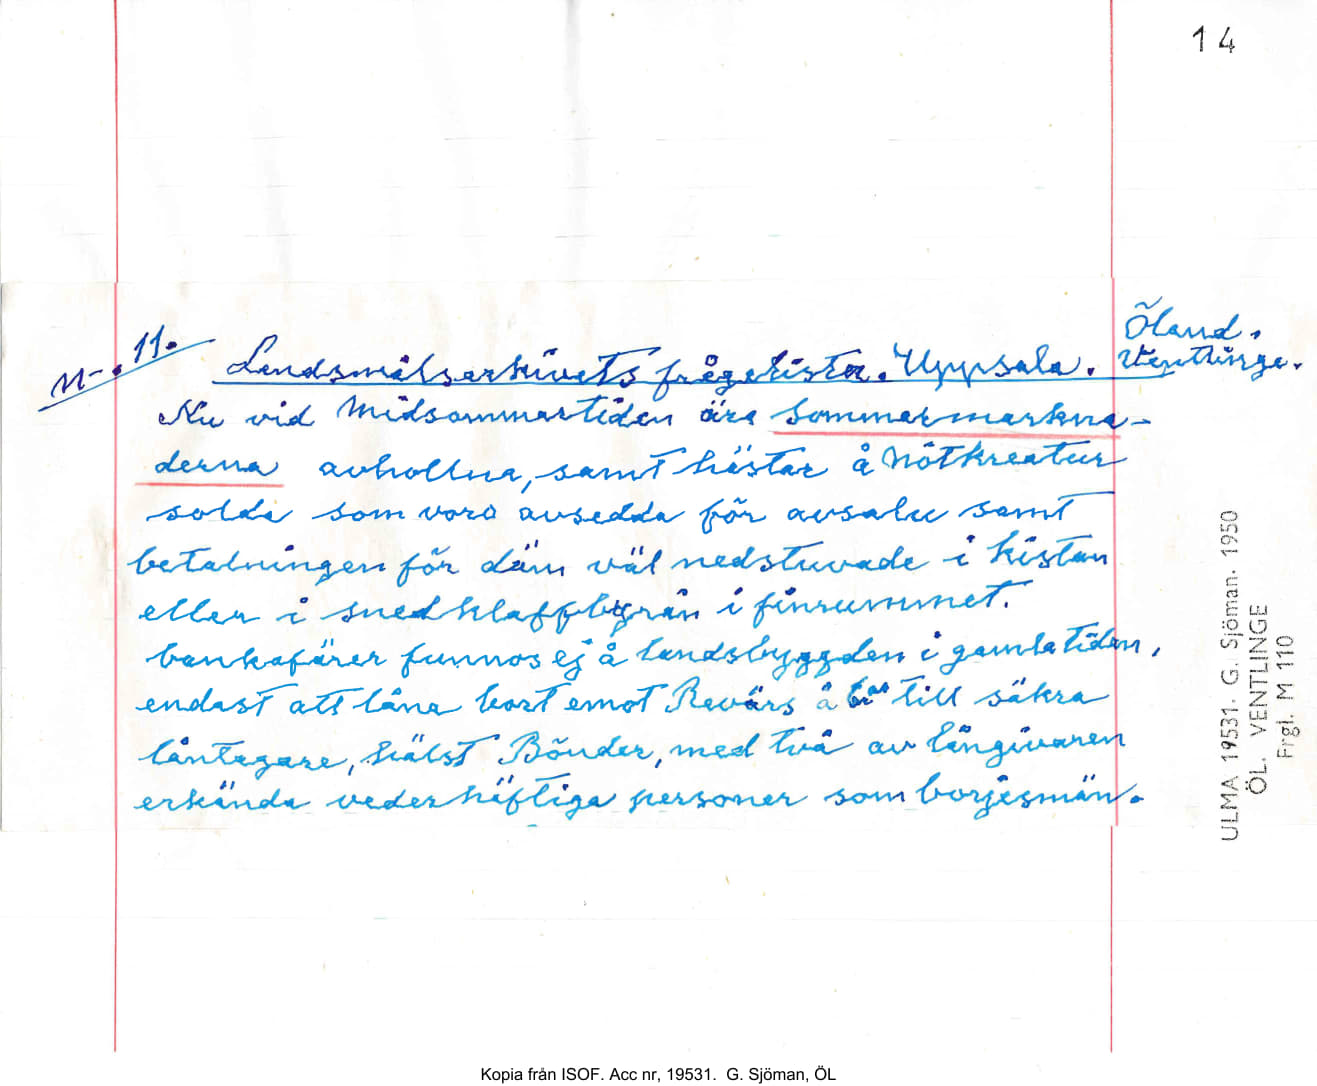 14
Öland.
N-. 11. Landsmålsarkivets frågelistor. Uppsala. Ventlinge.
Nu vid Midsommartiden äro Sommarmarkna-
derna avhollna, samt hästar å Nötkreatur
solda som voro avsedda för avsalu samt
betalningen för däm väl nedstuvade i kistan
eller i snedklaffbyrån i finrummet.
bankafärer funnos ej å landsbyggden i gamla tiden,
endast att låna bort emot Revärs å till säkra
låntagare, hälst Bönder, med två av långivaren
erkända vederhäftiga personer som borjesmän.
ULMA 19531. G. Sjöman. 1950
ÖL. VENTLINGE
Frgl. M 110
Kopia från ISOF. Acc nr, 19531. G. Sjöman, ÖL